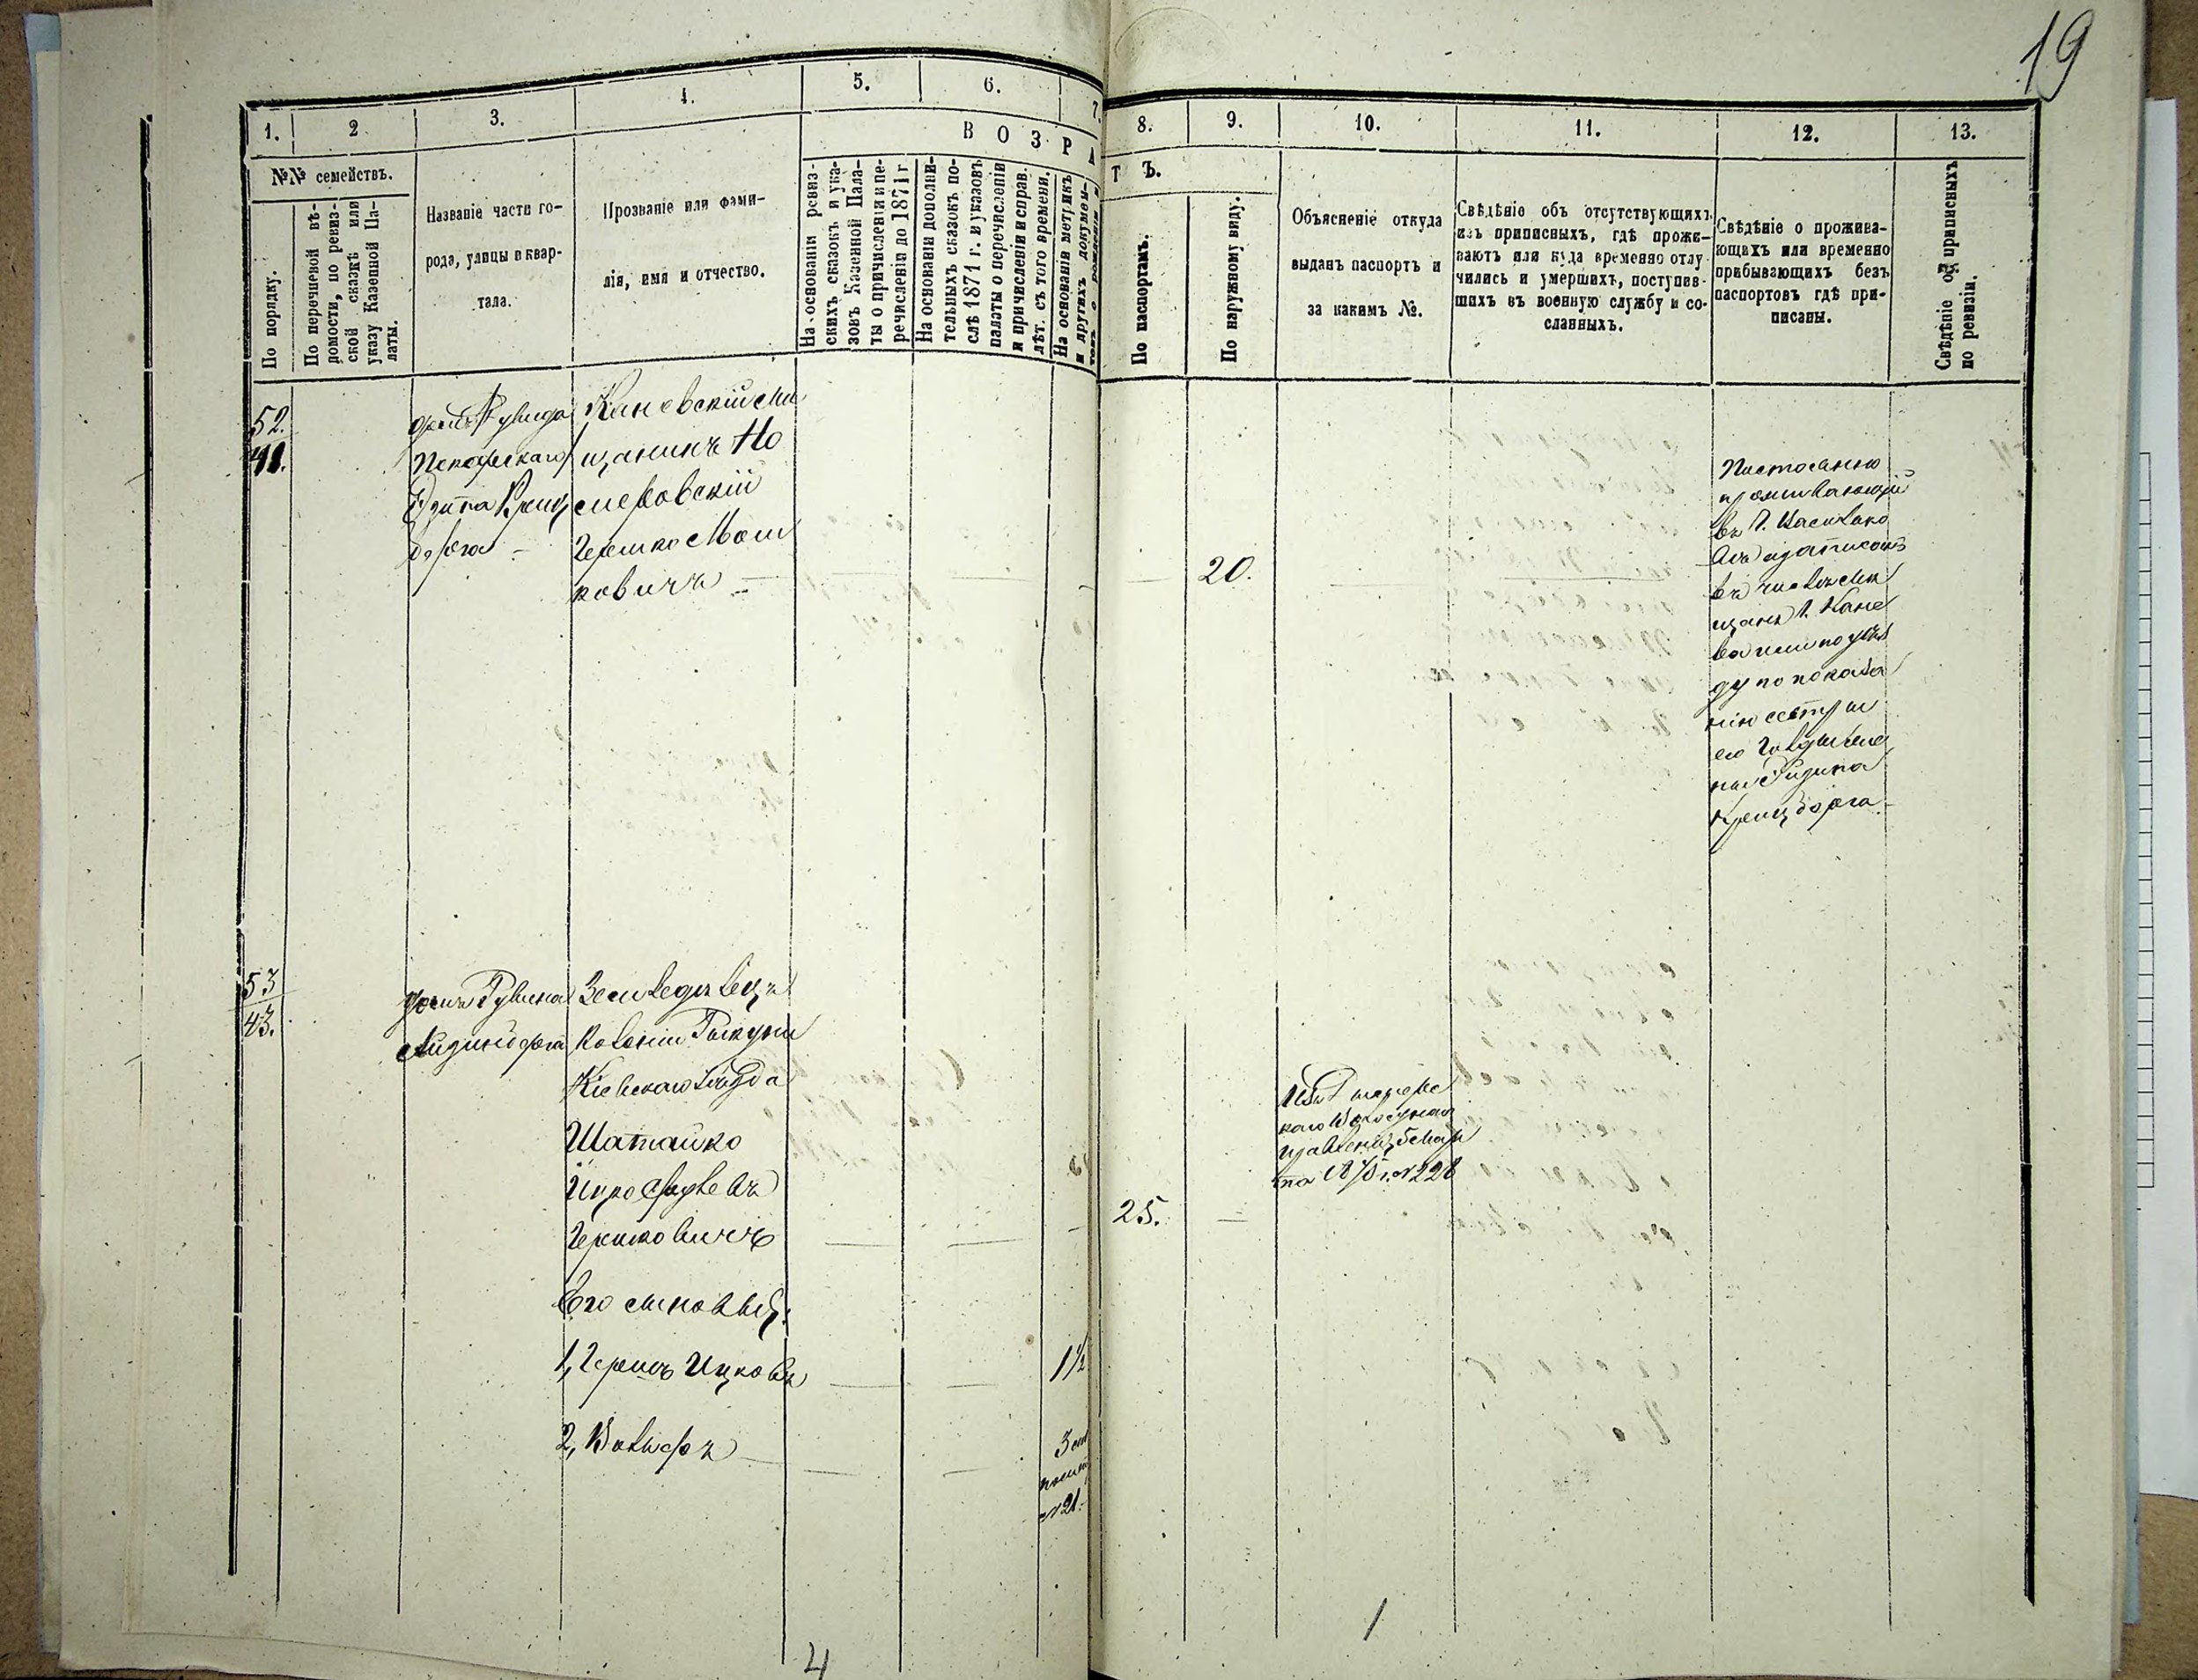 19
1.
2
3.
4.
5.
6.
7.
8.
9.
10.
11.
12.
13.
№№ семействъ.
В О З Р А
Т Ъ.
По порядку.
По перечневой вѣ-
домости, по ревиз-
ской сказкѣ или
указу Казенной Па-
латы.
Названіе части го-
рода, улицы и квар-
тала.
Прозваніе или фами-
лія, имя и отчество.
На основаніи ревиз-
скихъ сказокъ и ука-
зовъ Казенной Пала-
ты о причисленіи и пе-
речисленіи до 1871 г
На основаніи дополни-
тельныхъ сказокъ по-
слѣ 1871 г. и указовъ
палаты о перечисленіи
и причисленіи и справ.
лѣт. съ того времени.
На основаніи метрикъ
и другихъ докумен-
товъ о рожденіи
По паспортамъ.
По наружному виду.
Объясненіе откуда
выданъ паспортъ и
за какимъ №.
Свѣдѣніе объ отсутствующихъ
изъ приписныхъ, гдѣ прожи-
ваютъ или куда временно отлу-
чились и умершихъ, поступив-
шихъ въ военную службу и со-
сланныхъ.
Свѣдѣніе о прожива-
ющихъ или временно
прибывающихъ безъ
паспортовъ гдѣ при-
писаны.
Свѣдѣніе объ приписныхъ
по ревизіи.
52.
41.
домъ
Крейц
борга
Каневскій мѣ
щанинъ
Гершко Мош
ковичъ
20.
Постоянно
проживающій
въ г. Василько
въ
въ числѣ мѣ
щанъ г. Кане
ва или по уѣз
ду по показа
нію сестры
его
Крейцборга
53
43.
домъ Рувина
Айзинборга
Земледѣлецъ
колоніи
Кіевскаго уѣзда
Шатайко
Ицко
Гершковичъ
25.
№ 228
Его сыновья:
1, Гершъ Ицковъ
1½
2, Вольфъ
3
№ 21.
4
1